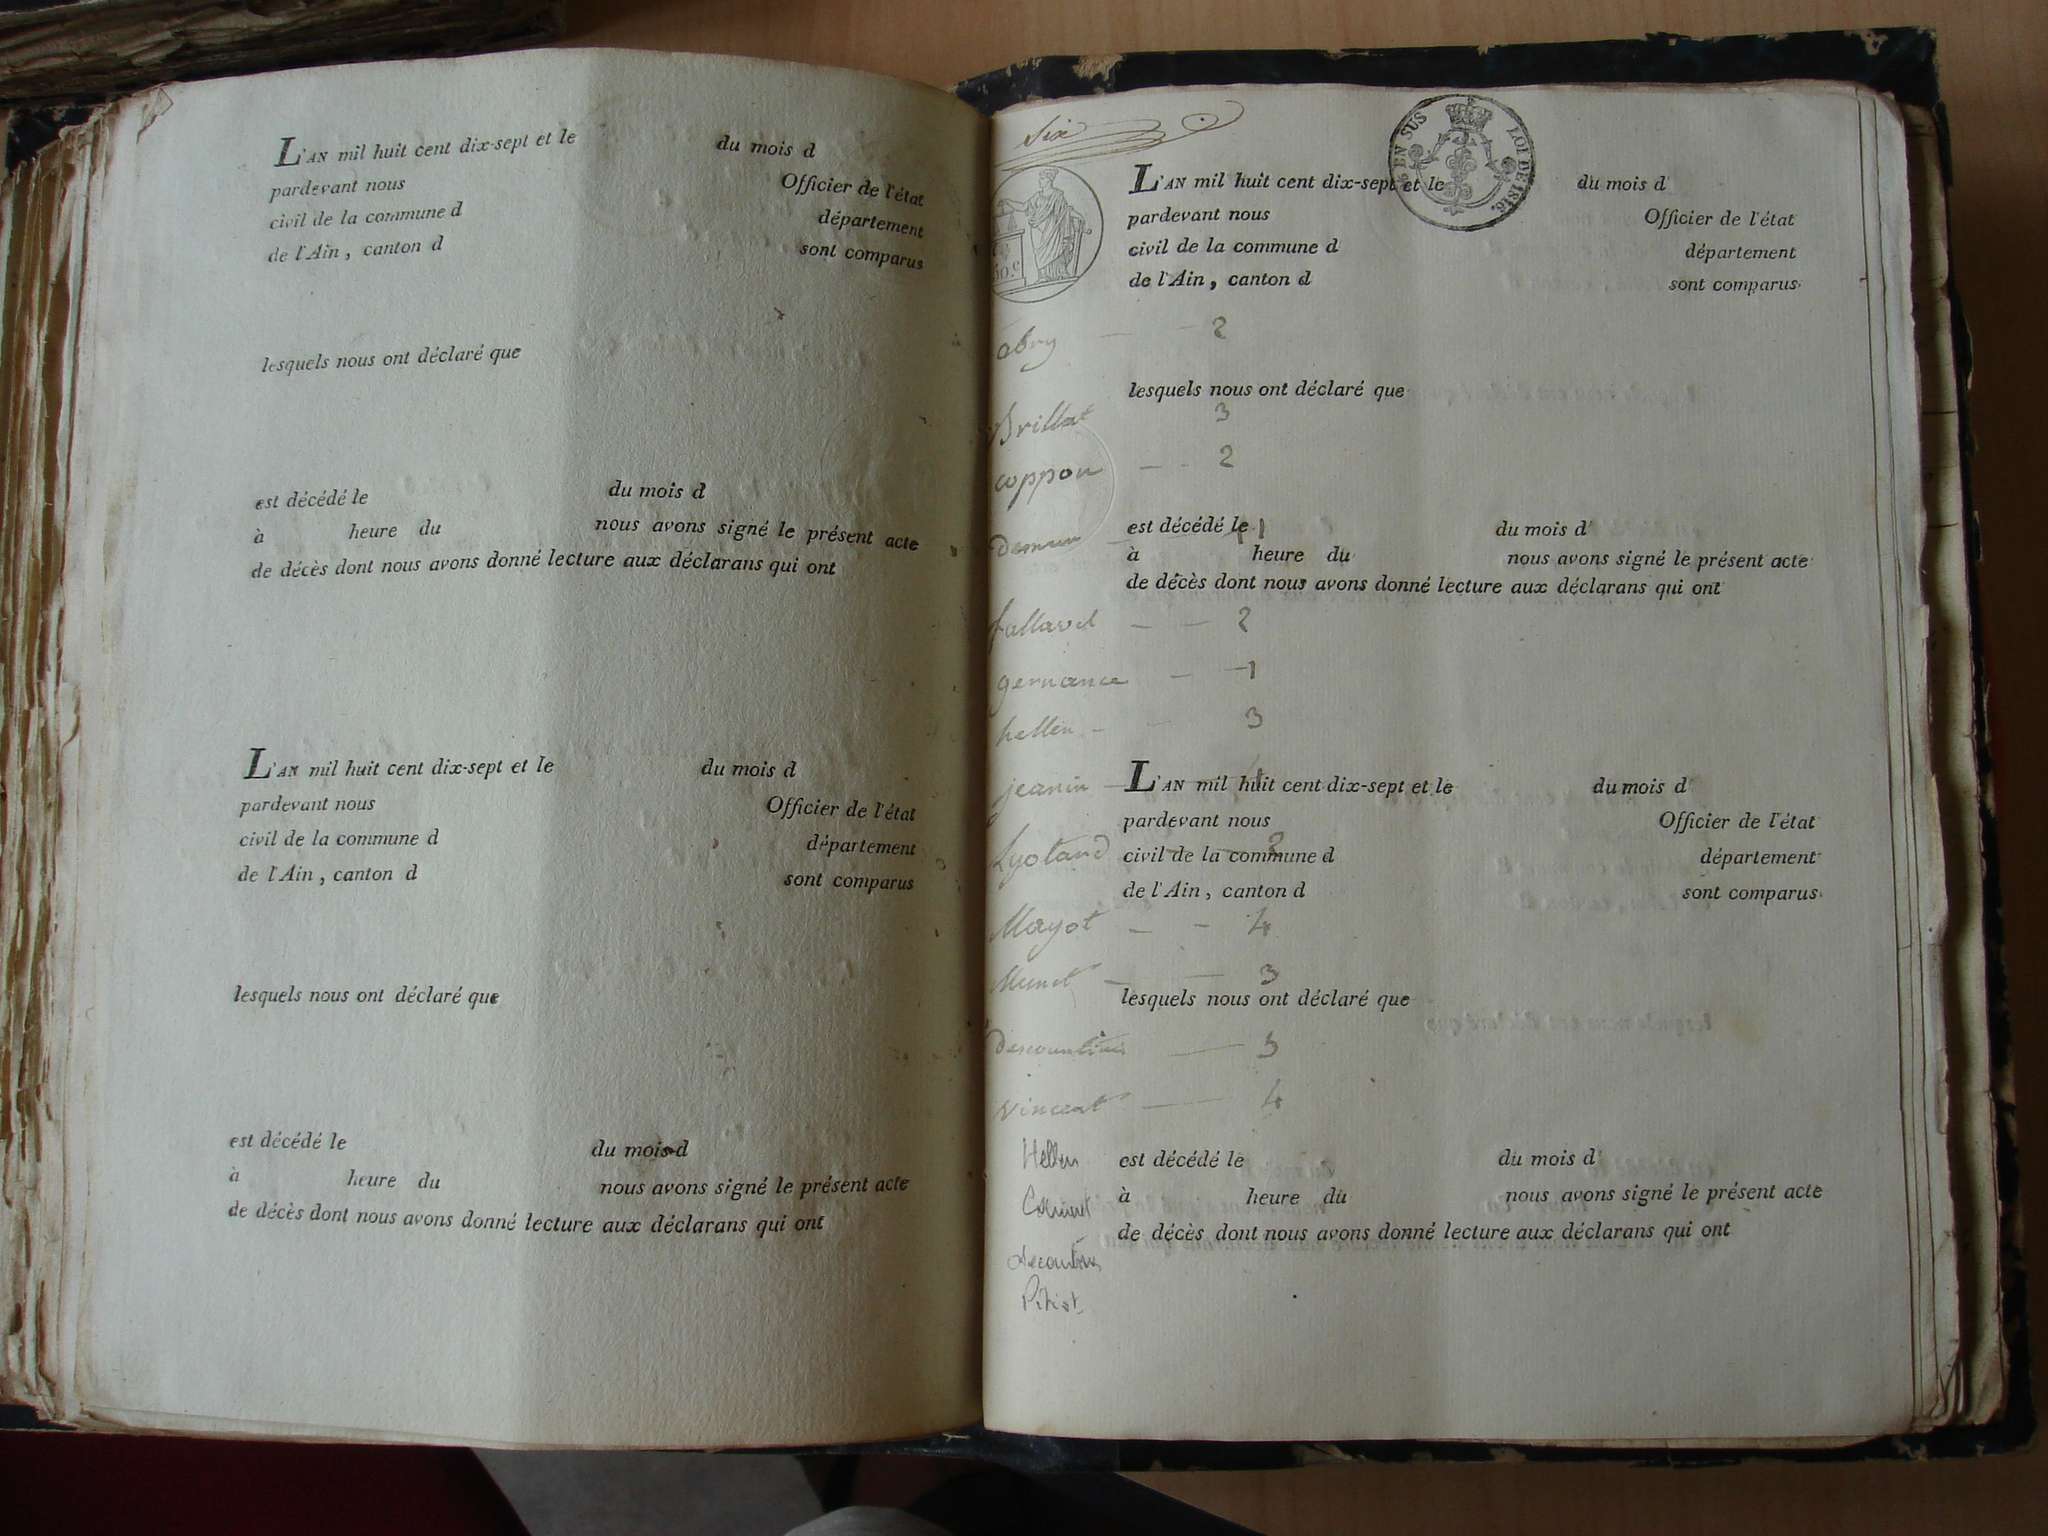 L'AN mil huit cent dix-sept et le du mois d
pardevant nous Officier de l'état
civil de la commune d département
de l'Ain, canton d sont comparus
lesquels nous ont déclaré que
est décédé le du mois d
à heure du nous avons signé le présent acte
de décès dont nous avons donné lecture aux déclarans qui ont
L'AN mil huit cent dix-sept et le du mois d
pardevant nous Officier de l'état
civil de la commune d département
de l'Ain, canton d sont comparus
lesquels nous ont déclaré que
est décédé le du mois d
à heure du nous avons signé le présent acte
de décès dont nous avons donné lecture aux déclarans qui ont
six
EN SUS LOI DE 1816.
L'AN mil huit cent dix-sept et le du mois d
pardevant nous Officier de l'état
civil de la commune d département
de l'Ain, canton d sont comparus
abry — - 2
lesquels nous ont déclaré que
Brillat 3
coppon — - 2
est décédé le du mois d
1
à heure du nous avons signé le présent acte
de décès dont nous avons donné lecture aux déclarans qui ont
fallavel — — 2
gernance — 1
hellen - - 3
jeanin —
L'AN mil huit cent dix-sept et le du mois d
pardevant nous Officier de l'état
Lyotard — — 2
civil de la commune d département
de l'Ain, canton d sont comparus
Mayot — - 4
Munet — — 3
lesquels nous ont déclaré que
— 3
vincent — 4
Hellen
est décédé le du mois d
à heure du nous avons signé le présent acte
de décès dont nous avons donné lecture aux déclarans qui ont